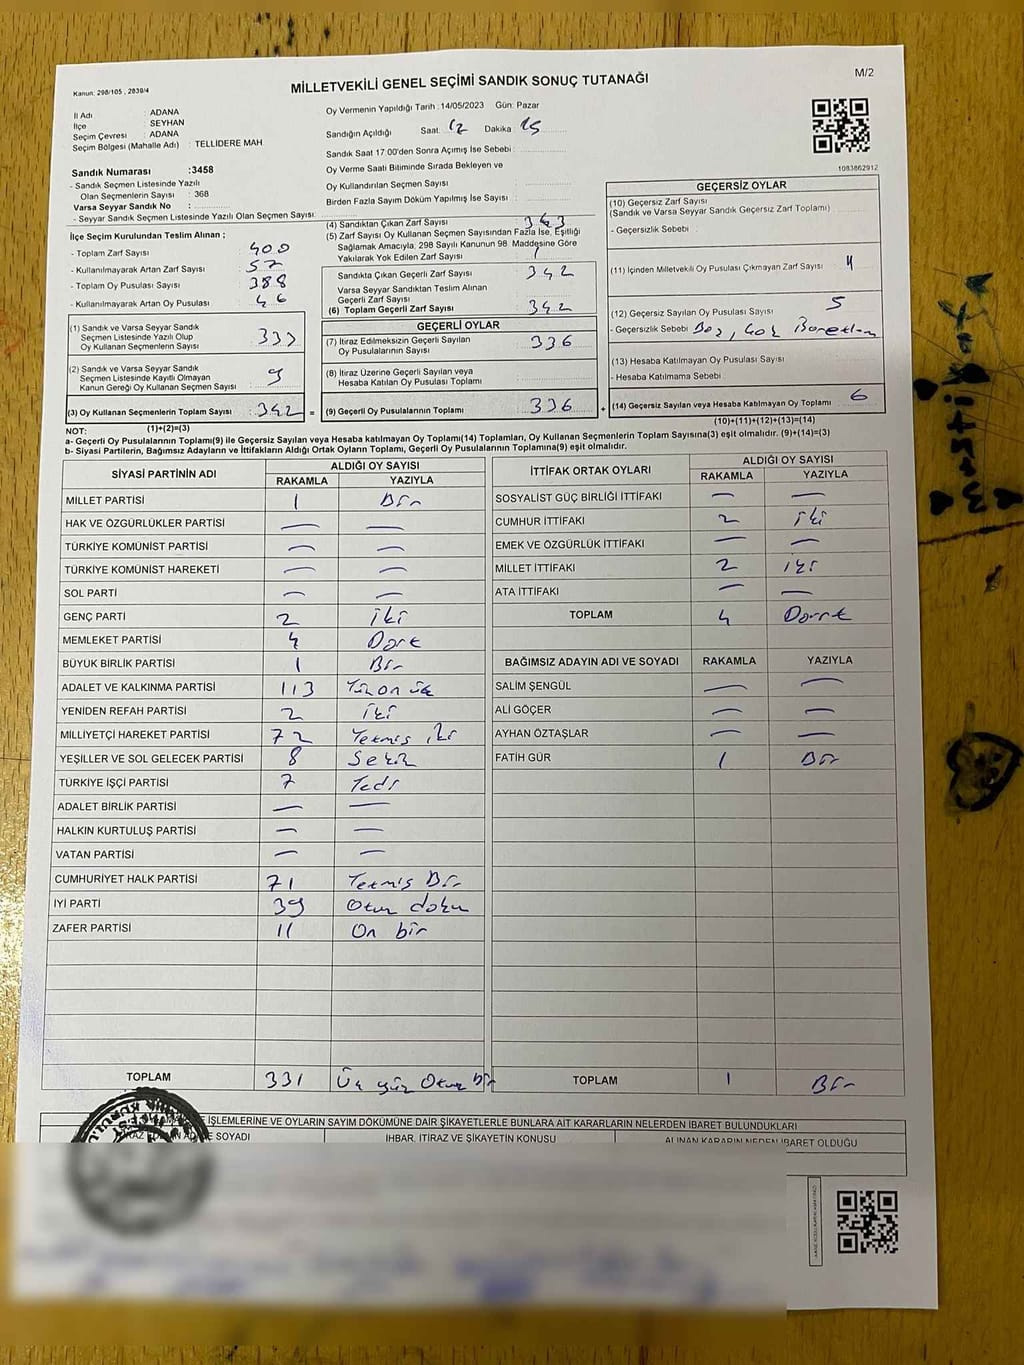 Kanun: 298/105 , 2839/4
MİLLETVEKİLİ GENEL SEÇİMİ SANDIK SONUÇ TUTANAĞI
M/2
İl Adı : ADANA
İlçe : SEYHAN
Seçim Çevresi : ADANA
Seçim Bölgesi (Mahalle Adı) : TELLİDERE MAH
Sandık Numarası :3458
- Sandık Seçmen Listesinde Yazılı
Olan Seçmenlerin Sayısı : 368
Varsa Seyyar Sandık No :
- Seyyar Sandık Seçmen Listesinde Yazılı Olan Seçmen Sayısı:
Oy Vermenin Yapıldığı Tarih :14/05/2023 Gün: Pazar
Sandığın Açıldığı Saat: 17 Dakika 15
Sandık Saat 17:00'den Sonra Açımış İse Sebebi :
Oy Verme Saati Bitiminde Sırada Bekleyen ve
Oy Kullandırılan Seçmen Sayısı :
Birden Fazla Sayım Döküm Yapılmış İse Sayısı :
1083862912
İlçe Seçim Kurulundan Teslim Alınan ;
- Toplam Zarf Sayısı : 400
- Kullanılmayarak Artan Zarf Sayısı : 57
- Toplam Oy Pusulası Sayısı : 388
- Kullanılmayarak Artan Oy Pusulası : 46
(1) Sandık ve Varsa Seyyar Sandık
Seçmen Listesinde Yazılı Olup
Oy Kullanan Seçmenlerin Sayısı : 333
(2) Sandık ve Varsa Seyyar Sandık
Seçmen Listesinde Kayıtlı Olmayan
Kanun Gereği Oy Kullanan Seçmen Sayısı : 9
(3) Oy Kullanan Seçmenlerin Toplam Sayısı : 342 =
(1)+(2)=(3)
(4) Sandıktan Çıkan Zarf Sayısı : 343
(5) Zarf Sayısı Oy Kullanan Seçmen Sayısından Fazla İse, Eşitliği
Sağlamak Amacıyla, 298 Sayılı Kanunun 98. Maddesine Göre
Yakılarak Yok Edilen Zarf Sayısı : 1
Sandıkta Çıkan Geçerli Zarf Sayısı : 342
Varsa Seyyar Sandıktan Teslim Alınan
Geçerli Zarf Sayısı :
(6) Toplam Geçerli Zarf Sayısı : 342
GEÇERLİ OYLAR
(7) İtiraz Edilmeksizin Geçerli Sayılan
Oy Pusulalarının Sayısı : 336
(8) İtiraz Üzerine Geçerli Sayılan veya
Hesaba Katılan Oy Pusulası Toplamı :
(9) Geçerli Oy Pusulalarının Toplamı : 336 +
GEÇERSİZ OYLAR
(10) Geçersiz Zarf Sayısı
(Sandık ve Varsa Seyyar Sandık Geçersiz Zarf Toplamı) :
- Geçersizlik Sebebi :
(11) İçinden Milletvekili Oy Pusulası Çıkmayan Zarf Sayısı :
(12) Geçersiz Sayılan Oy Pusulası Sayısı : 5
- Geçersizlik Sebebi :
(13) Hesaba Katılmayan Oy Pusulası Sayısı :
- Hesaba Katılmama Sebebi :
(14) Geçersiz Sayılan veya Hesaba Katılmayan Oy Toplamı : 6
(10)+(11)+(12)+(13)=(14)
NOT:
a- Geçerli Oy Pusulalarının Toplamı(9) ile Geçersiz Sayılan veya Hesaba katılmayan Oy Toplamı(14) Toplamları, Oy Kullanan Seçmenlerin Toplam Sayısına(3) eşit olmalıdır. (9)+(14)=(3)
b- Siyasi Partilerin, Bağımsız Adayların ve İttifakların Aldığı Ortak Oyların Toplamı, Geçerli Oy Pusulalarının Toplamına(9) eşit olmalıdır.
SİYASİ PARTİNİN ADI ALDIĞI OY SAYISI
RAKAMLA YAZIYLA
MİLLET PARTİSİ 1 Bir
HAK VE ÖZGÜRLÜKLER PARTİSİ — —
TÜRKİYE KOMÜNİST PARTİSİ — —
TÜRKİYE KOMÜNİST HAREKETİ — —
SOL PARTİ — —
GENÇ PARTİ 2 İki
MEMLEKET PARTİSİ 4 Dört
BÜYÜK BİRLİK PARTİSİ 1 Bir
ADALET VE KALKINMA PARTİSİ 113 Yüz on üç
YENİDEN REFAH PARTİSİ 2 İki
MİLLİYETÇİ HAREKET PARTİSİ 72 Yetmiş iki
YEŞİLLER VE SOL GELECEK PARTİSİ 8 Sekiz
TÜRKİYE İŞÇİ PARTİSİ 7 Yedi
ADALET BİRLİK PARTİSİ — —
HALKIN KURTULUŞ PARTİSİ — —
VATAN PARTİSİ — —
CUMHURİYET HALK PARTİSİ 71 Yetmiş Bir
İYİ PARTİ 39 Otuz dokuz
ZAFER PARTİSİ 11 On bir
TOPLAM 331 Üç yüz Otuz bir
İTTİFAK ORTAK OYLARI ALDIĞI OY SAYISI
RAKAMLA YAZIYLA
SOSYALİST GÜÇ BİRLİĞİ İTTİFAKI — —
CUMHUR İTTİFAKI 2 iki
EMEK VE ÖZGÜRLÜK İTTİFAKI — —
MİLLET İTTİFAKI 2 iki
ATA İTTİFAKI — —
TOPLAM 4 Dört
BAĞIMSIZ ADAYIN ADI VE SOYADI RAKAMLA YAZIYLA
SALİM ŞENGÜL — —
ALİ GÖÇER — —
AYHAN ÖZTAŞLAR — —
FATİH GÜR 1 Bir
TOPLAM 1 Bir
İŞLEMLERİNE VE OYLARIN SAYIM DÖKÜMÜNE DAİR ŞİKAYETLERLE BUNLARA AİT KARARLARIN NELERDEN İBARET BULUNDUKLARI
SOYADI İHBAR, İTİRAZ VE ŞİKAYETİN KONUSU ALINAN KARARIN NEDEN İBARET OLDUĞU